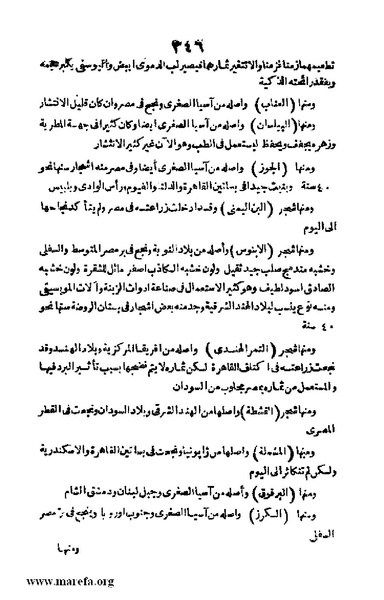 ٣٤٦
تطعيمهما زمنا فزمنا والا تتغير ثمارهما فيصير لب الدموى ابيض والیوسفى يكبر حجمه
ويفقد رائحته الذكية
ومنها (العناب) واصله من آسيا الصغرى ونجح في مصر وان كان قليل الانتشار
ومنها (البيلسان) واصله من آسيا الصغرى ايضا وكان كثيرا في جهة المطرية
وزهره يجفف ويحفظ ليستعمل في الطب وهو الآن غير كثير الانتشار
ومنها (الجوز) واصله من آسيا الصغرى أيضا وفي مصر منه اشجار سنها نحو
٤٠ سنة وبقيت جيدا في بساتين القاهرة والدلتا والفيوم ورأس الوادى وبلبيس
ومنها شجر (البن اليمنى) وقد دخلت زراعته في مصر ولم يتأكد نجاحها
الى اليوم
ومنها شجر (الابنوس) وأصله من بلاد النوبة ونجح في بر مصر المتوسط والسفلى
وخشبه مندمج صلب جيد ثقيل ولون خشبه الكاذب اصفر مائل للشقرة ولون خشبه
الصادق اسود لطيف وهو كثير الاستعمال في صناعة ادوات الزينة وآلات الموسيقى
ومنه نوع ينسب لبلاد الهند الشرقية وجد منه بعض اشجار في بستان الروضة سنها نحو
٤٠ سنة
ومنها شجر (التمر الهندى) واصله من افريقا المركزية وبلاد الهند وقد
نجحت زراعته في اكناف القاهرة لكن ثماره لا يتم نضجها بسبب تأثير البرد فيها
والمستعمل من ثماره بمصر مجلوب من السودان
ومنها شجر (القشطة) واصلها من الهند الشرقى وبلاد السودان ونجحت في القطر
المصرى
ومنها (المشملة) واصلها من ژاپونيا ونجحت في بساتين القاهرة والاسكندرية
ولكن لم تتكاثر الى اليوم
ومنها (البرقوق) وأصله من آسيا الصغرى وجبل لبنان ودمشق الشام
ومنها (الكرز) واصله من آسيا الصغرى وجنوب اوروبا وينجح في بر مصر
السفلى
ومنها
www.marefa.org